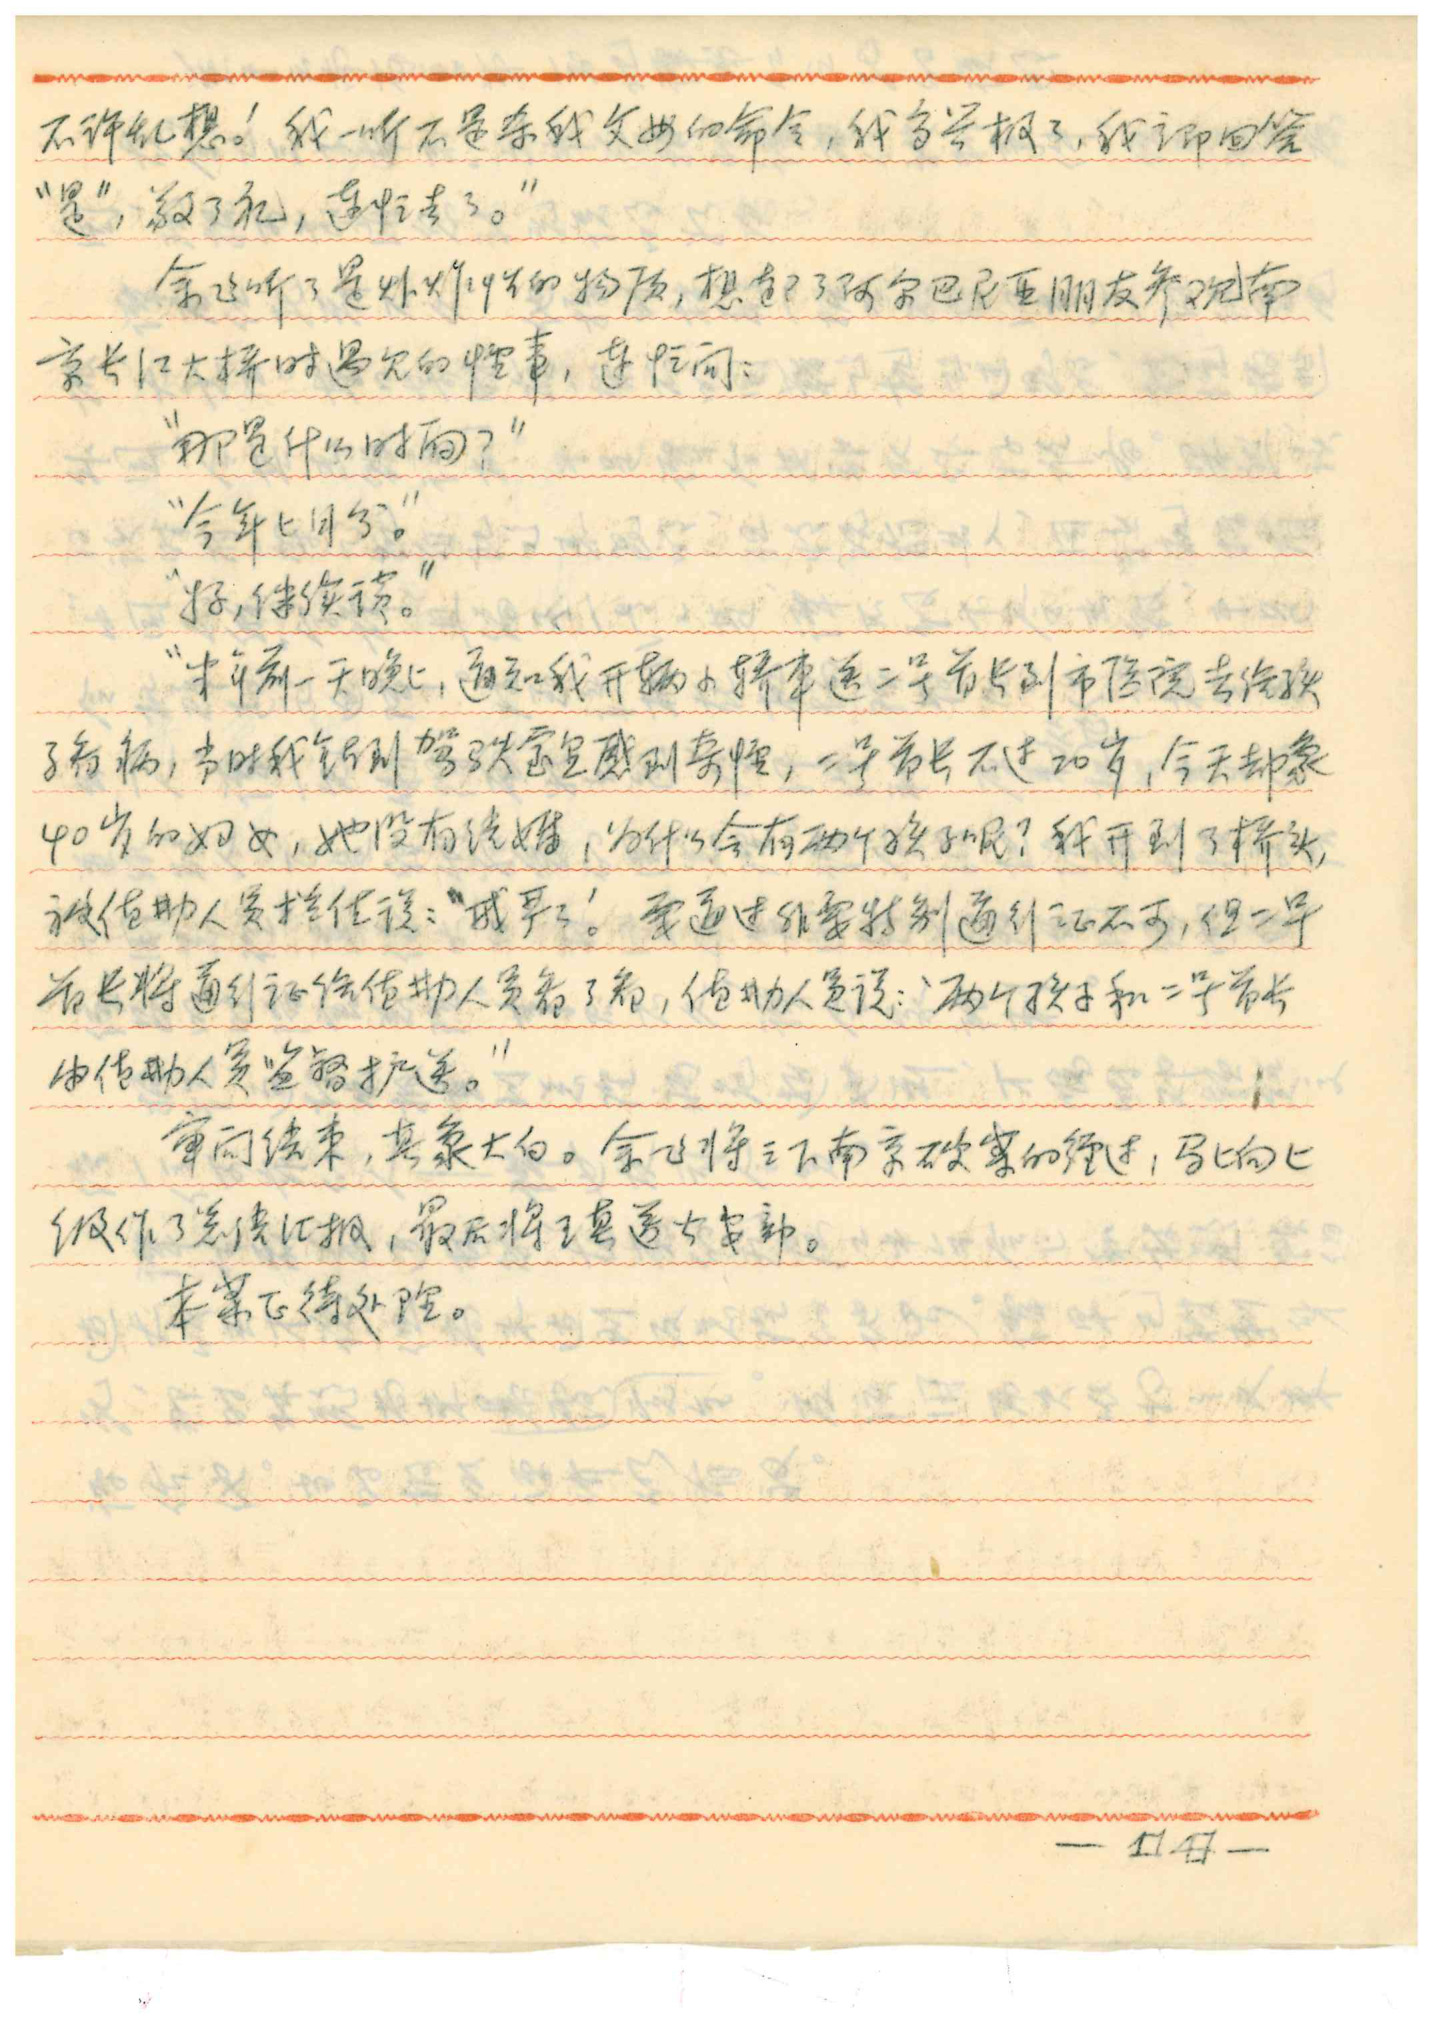 不许乱想！我一听不是杀我父母的命令，我高兴极了，我立即回答
“是”，敬了礼，连忙去了。”
余飞听了是炸炸性的物质，想起了阿尔巴尼亚朋友参观南
京长江大桥时遇见的怪事，连忙问：
“那是什么时间？”
“今年七月分。”
“好，继续谈。”
“半年前一天晚上，通知我开辆小轿车送二号首长到市医院去给孩
子看病，当时我钻到驾驶室里感到奇怪，二号首长不过20岁，今天却象
40岁的妇女，她没有结婚，为什么会有两个孩子呢？我开到了桥头，
被值勤人员拦住说：“戒严了！要通过非要特别通行证不可，但二号
首长将通行证给值勤人员看了看，值勤人员说：‘两个孩子和二号首长
由值勤人员监督护送。”
审问结束，真象大白。余飞将三下南京破案的经过，马上向上
级作了总结汇报，最后将王真送公安部。
本案正待处理。
— 14 —